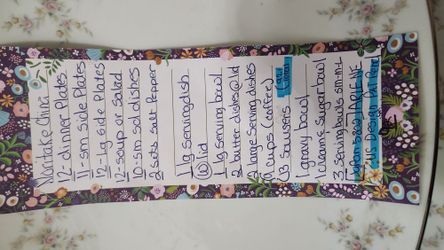 Noritake China
12- dinner Plates
11- sm side Plates
12- lg side Plates
12- soup or Salad
10- sm sd dishes
2 sets salt Pepper
1 lg serving dish
lid
1 lg serving bowl
2 butter dishes
2 large serving dishes
9 cups (coffee)
13 sausers
1 gravy bowl
1 creamer sugar bowl
3 serving bowls sm-m-L
Japan
U.S. Design